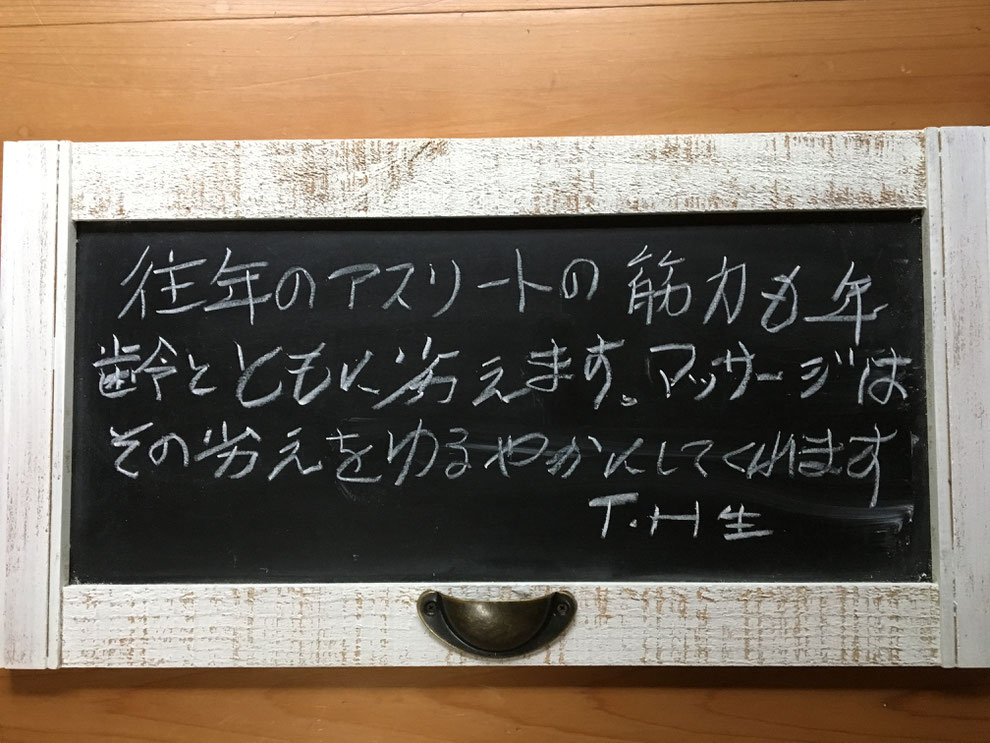 往年のアスリートの筋力も年
齢とともに劣えます。マッサージは
その劣えをゆるやかにしてくれます
T.H生